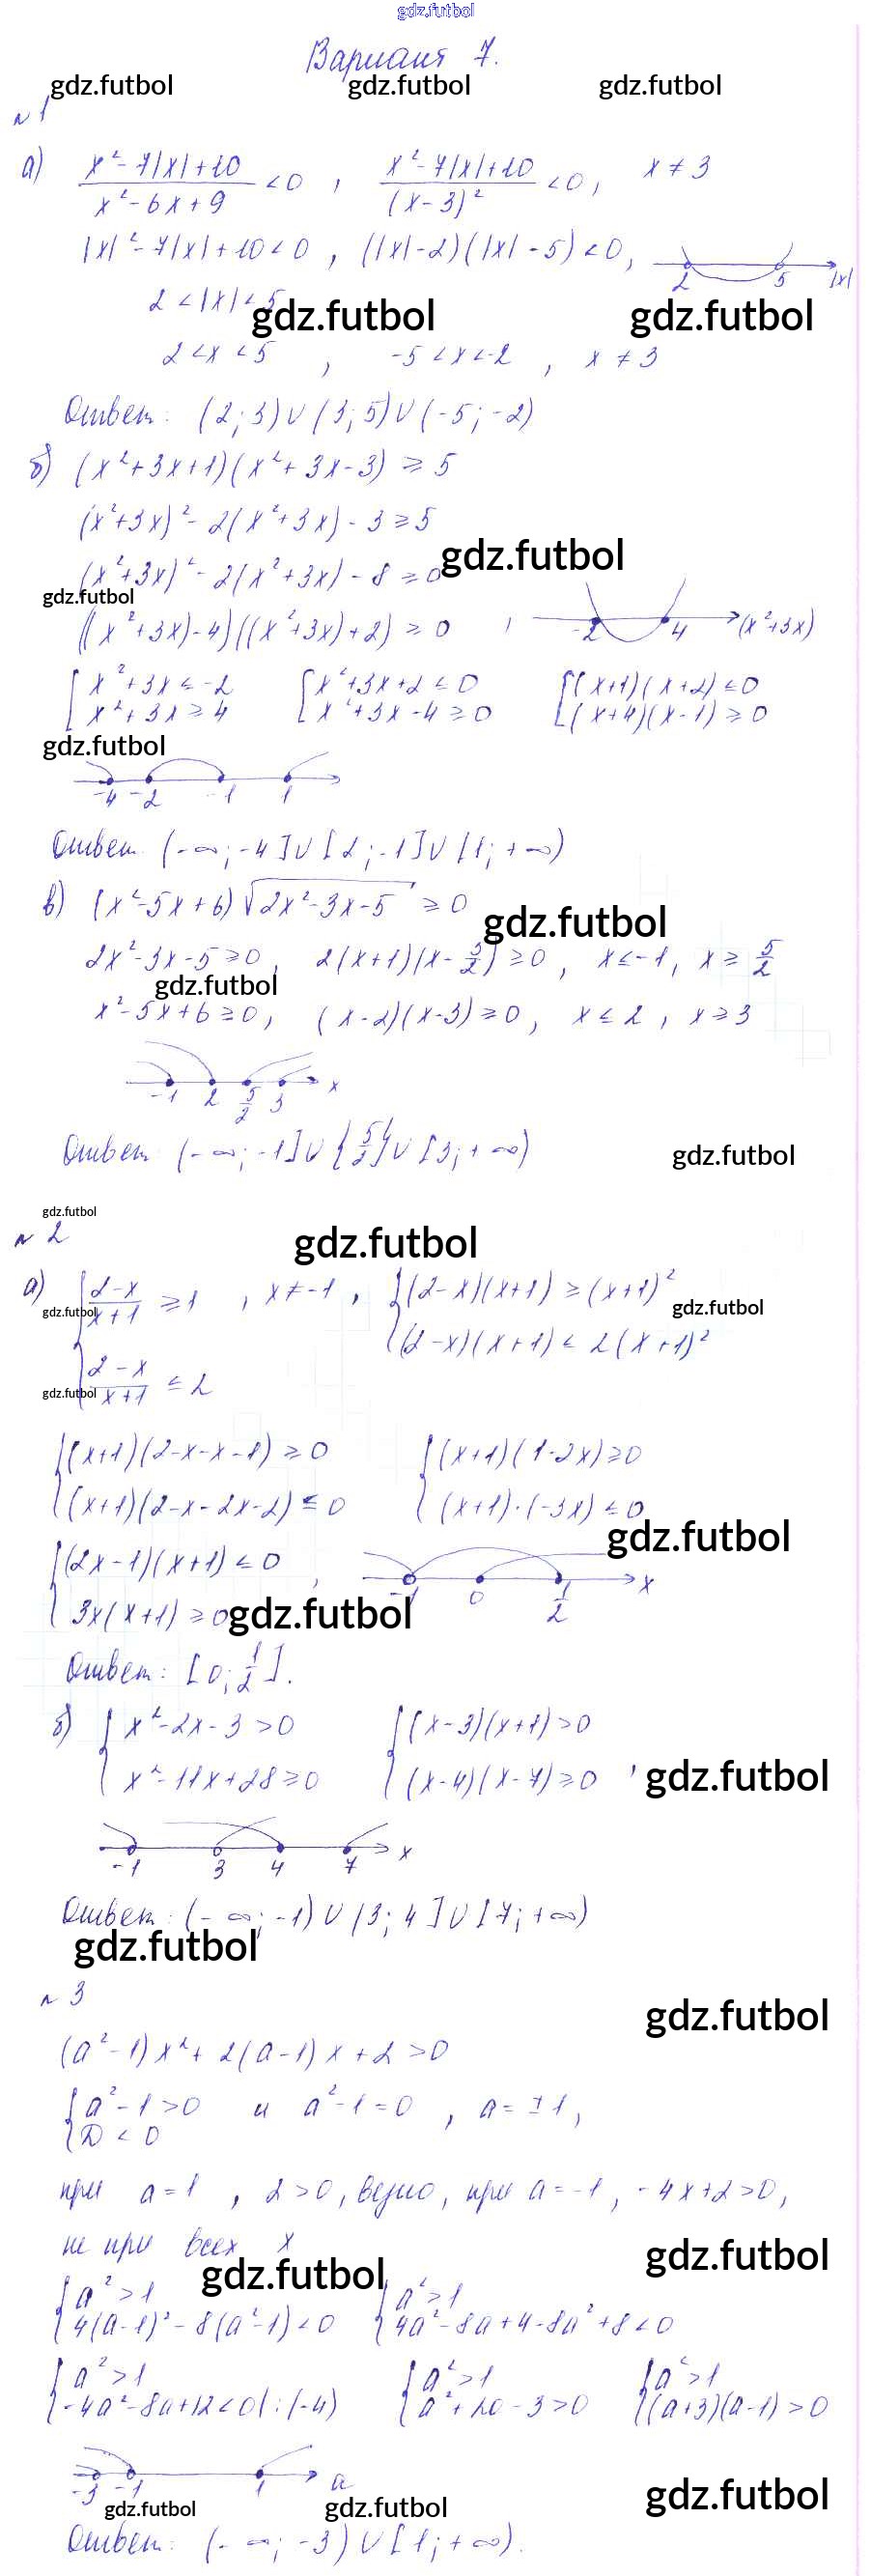 gdz.futbol
Вариант 7.
gdz.futbol gdz.futbol gdz.futbol
№ 1
а) (x²-7|x|+10)/(x²-6x+9) <0 , (x²-7|x|+10)/(x-3)² <0, x≠3
|x|²-7|x|+10<0 , (|x|-2)(|x|-5)<0, 2 5 |x|
2<|x|<5
gdz.futbol gdz.futbol
2<x<5 , -5<x<-2 , x≠3
Ответ: (2;3)∪(3;5)∪(-5;-2)
б) (x²+3x+1)(x²+3x-3) ≥ 5
(x²+3x)²-2(x²+3x)-3≥5
(x²+3x)²-2(x²+3x)-8≥0 gdz.futbol
gdz.futbol
((x²+3x)-4)((x²+3x)+2) ≥ 0 , -2 4 (x²+3x)
[x²+3x≤-2 [x²+3x+2≤0 [(x+1)(x+2)≤0
[x²+3x≥4 [x²+3x-4≥0 [(x+4)(x-1)≥0
gdz.futbol
-4 -2 -1 1
Ответ (-∞;-4]∪[2;-1]∪[1;+∞)
в) (x²-5x+6)√(2x²-3x-5) ≥0 gdz.futbol
2x²-3x-5≥0, 2(x+1)(x-5/2)≥0, x≤-1, x≥5/2
gdz.futbol
x²-5x+6≥0, (x-2)(x-3)≥0, x≤2, x≥3
-1 2 5/2 3 x
Ответ: (-∞;-1]∪{5/2}∪[3;+∞) gdz.futbol
gdz.futbol
№ 2 gdz.futbol
а) {(2-x)/(x+1) ≥1 , x≠-1, {(2-x)(x+1)≥(x+1)²
gdz.futbol gdz.futbol
{(2-x)/(x+1) ≤2 {(2-x)(x+1)≤2(x+1)²
gdz.futbol
{(x+1)(2-x-x-1)≥0 {(x+1)(1-2x)≥0
{(x+1)(2-x-2x-2)≤0 {(x+1)·(-3x)≤0
gdz.futbol
{(2x-1)(x+1)≤0 , -1 0 1/2 x
{3x(x+1)≥0 gdz.futbol
Ответ: [0;1/2].
б) {x²-2x-3>0 {(x-3)(x+1)>0
{x²-11x+28≥0 {(x-4)(x-7)≥0 , gdz.futbol
-1 3 4 7 x
Ответ: (-∞;-1)∪(3;4]∪[7;+∞)
gdz.futbol
№ 3 gdz.futbol
(a²-1)x²+2(a-1)x+2>0
{a²-1>0 и a²-1=0 , a=±1,
{D<0
при a=1 , 2>0, верно, при a=-1, -4x+2>0,
не при всех x gdz.futbol
gdz.futbol
{a²>1 {a²>1
{4(a-1)²-8(a²-1)<0 {4a²-8a+4-8a²+8<0
{a²>1 {a²>1 {a²>1
{-4a²-8a+12<0|:(-4) {a²+2a-3>0 {(a+3)(a-1)>0
-3 -1 1 a gdz.futbol
gdz.futbol gdz.futbol
Ответ: (-∞;-3)∪[1;+∞).